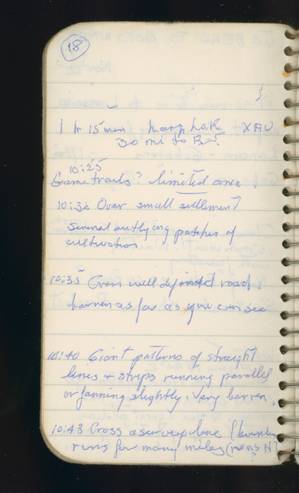 18
1 hr 15 min
30 mi to
10:25
Game trails? limited area.
10:32 Over small settlement
Several outlying patches of
cultivation
10:35 Over well defined road.
barren as far as you can see
10:40 Giant patterns of straight
lines + strips running parallel
or fanning slightly. Very barren.
10:43 Cross a survey line
runs for many miles